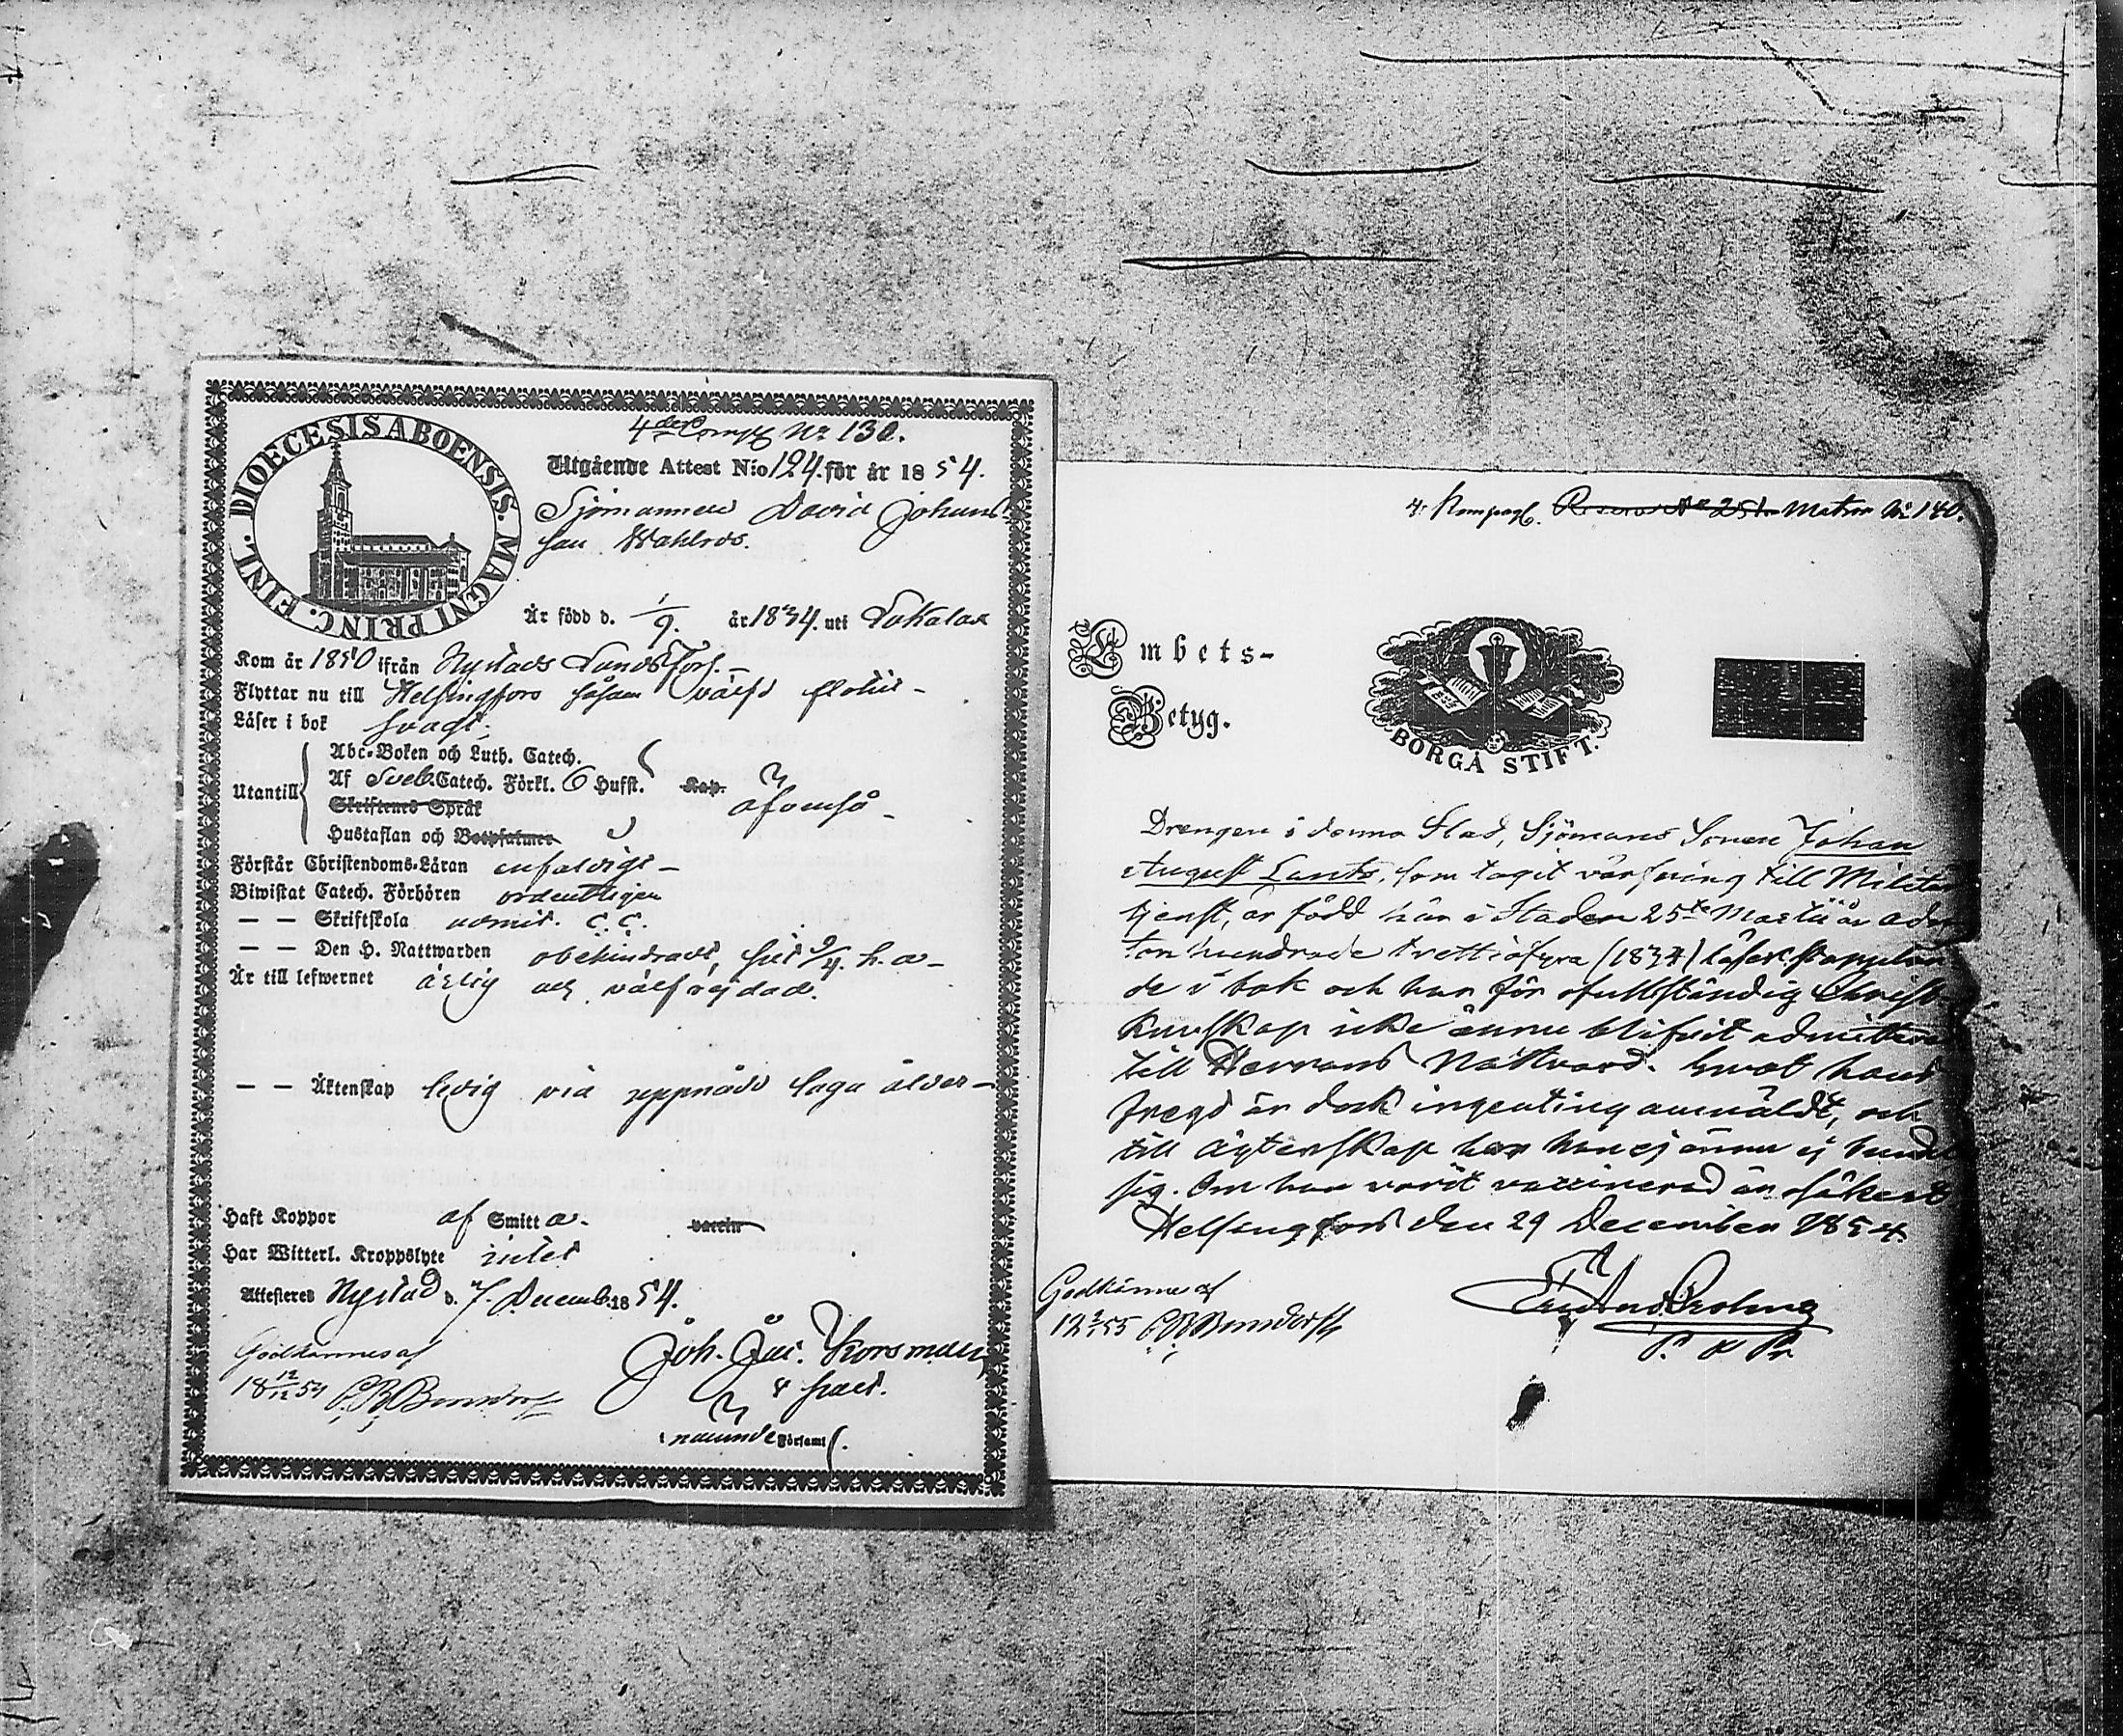 DIOECESIS ABOENSIS. MAGNI PRINC. FINL.
4de Comp Nr 130.
Utgående Attest N:o 124. för år 1854.
Sjömannen David Johans
son Wahlros.
Är född d. 1/9. år 1834. uti Lokalax
Kom år 1850 ifrån Nystads Landsförs.
Flyttar nu till Helsingfors såsom
Läser i bok svagt.
Utantill
Abc-Boken och Luth. Catech.
Af Sveb. Catech. Förkl. 6 Hufst. Kap.
Skriftenes Språk
Hustaflan och Botpsalmer
Förstår Christendoms-Läran enfaldigt
Biwistat Catech. Förhören ordentligen
— — Skriftskola admit.
— — Den H. Nattwarden obehindradt, sist 9/4. h. a
Är till lefwernet ärlig och välfrejdad.
— — Äktenskap ledig via uppnådd laga ålder
Haft Koppor af Smitt a. vaccin
Har Witterl. Kroppslyte intet
Attesteres Nystad d. 7. Decemb. 1854.
Godkännes af
18 12/12 54
Joh. Jac. Korsman
i Församl.
4 Kompagt. Reserv No 251. Matros No 140.
Embets-
Betyg.
BORGÅ STIFT.
Drengen i denna Stad, Sjömans Sonen Johan
August Lants, som tagit värfning till Militär
tjenst, är född här i Staden 25te Martii år ader
ton hundrade trettiofyra (1834) läser stapplan
de i bok och har för ofullständig Christ.
kunskap icke ännu blifvit admitterad
till Herrans Nattvard. Emot hans
fregd är dock ingenting anmäldt, och
till ägtenskap har han ej ännu ej bundit
sig. Om han varit vaccinerad är osäkert
Helsingfors den 29 December 1854.
Godkännes af
12 2/1 55